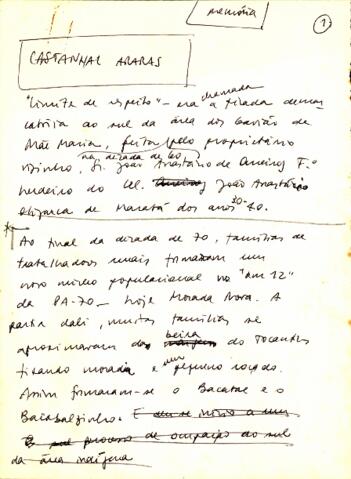 memória
1
CASTANHAL ARARAS
"Limite de respeito" – era chamada a picada demar
catória ao sul da área dos Gavião de
Mãe Maria, feita pelo proprietário
vizinho, na década de 60 Sr. João Anastácio de Queiroz F.o
herdeiro do Cel. Queiroz João Anastácio
oligarca de Marabá dos anos 30-40.
Ao final da década de 70, famílias de
trabalhadores rurais formaram um
novo núcleo populacional no "km 12"
da PA-70 – hoje Morada Nova. A
partir dali, muitas famílias se
aproximaram da beira do Tocantins
fixando morada e um pequeno roçado.
Assim formaram-se o Bacabal e o
Bacabalzinho. E deu-se início a um
processo de ocupação do sul
da área indígena